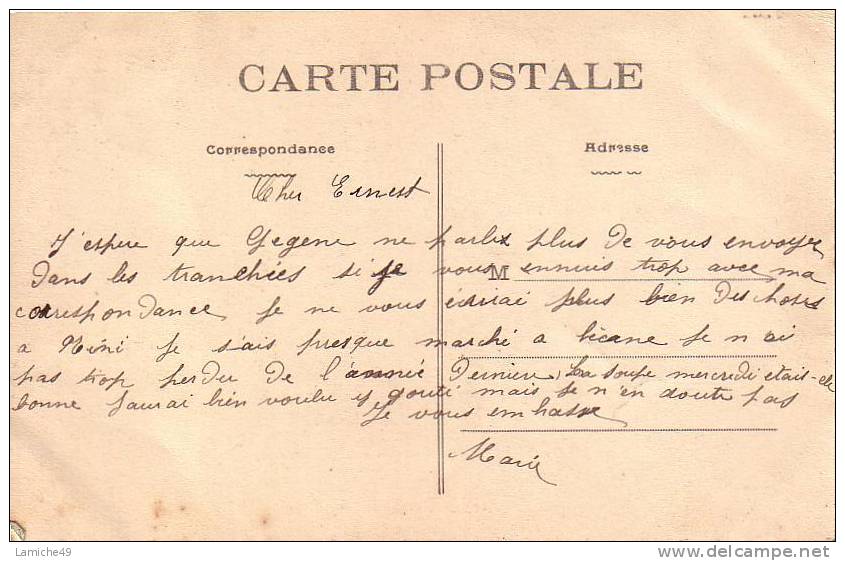 CARTE POSTALE
Correspondance
Adresse
Cher Ernest
J'espere que Gegene ne parle plus de vous envoyer
dans les tranchées si je vous ennuis trop avec ma
M
correspondance, je ne vous écrirai plus bien des choses
a Mimi je sais presque marché a bécane je n ai
pas trop perdu de l'année dernière, La soupe mercredi etais-elle
bonne j'aurai bien voulu y gouté mais je n'en doute pas
Je vous embrasse
Marie
Lamiche49
www.delcampe.net